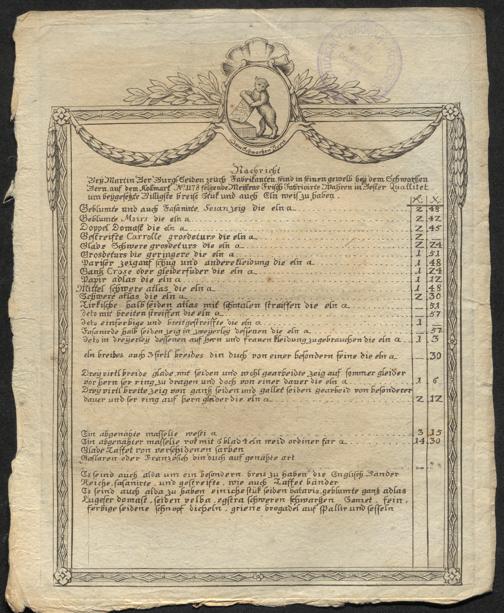 Zum Schwarzen Bern
Nachricht
Bey Martin Ber Burg: Seiden zeüch Fabrikanten sind in seinen gewelb bey dem Schwarssen
Bern auf dem Kolmark N: 1178 folgende Meissens Frisch Fabrizirte Wahren in Bester Quallitet
um beygesetzte Billigste breise Stuk und auch Eln weis zu haben
Geblumte und auch Fasanirte zeig die eln a 2 48
Geblumte Moire die eln a 2 42
Doppel Domast die eln a 2 45
Gestreifte Carrolle grosdeturs die eln a 2
Glade Schwere grosdeturs die eln a 2 24
Grosdeturs die geringere die eln a 1 51
Pariser zeig auf schug und andere kleidung die eln a 1 48
Ganz Crose oder gleiderfuder die eln a 1 24
Papir adlas die eln a 1 12
Mittel schwere atlas die eln a 1 48
Schwere atlas die eln a 2 30
Tirkische halb seiden atlas mit schmalen streiffen die eln a 51
deto mit breiten streiffen die eln a 57
deto einferbige und breitgestreifte die eln a 1
Fasanirde halb seiden zeig in zweyerley dessenen die eln a 57
deto in dreyerley dessenen auf hern und frauen kleidung zugebrauchen die eln a 1 3
ein breibes auch 3 brtl breibes din duch von einer besondern feine die eln a 30
Drey virtl breide glade mit seiden und wohl gearbeidte zeig auf sommer gleider
vor hern ser ring zu dragen und doch von einer dauer die eln a 1 6
Drey virtl breite zeig von ganz seiden und gallet seiden gearbeid von besonderer
dauer und ser ring auf hern gleider die eln a 2 12
Ein abgenähte massolie westi a 3 15
Ein abgenähter massolie rok mit 5 blad 4 eln weid ordiner far a 14 30
Glade Taffet von verschidenen farben
Gollaren oder Französich din duch auf genahte art
Es seind auch alda um ein besondern breis zu haben die Englisch Bänder
Reiche, fasanirte, und gestreifte, wie auch Taffet bänder
Es seind auch alda zu haben einiche stuk seiden batavis, geblumte ganz adlas
Lugeser domast, seiden velba, egstra schweren schwarzen Gomet, fein,
ferbige seidene schnopf dicheln, griene brogadel auf Spallir und sesseln